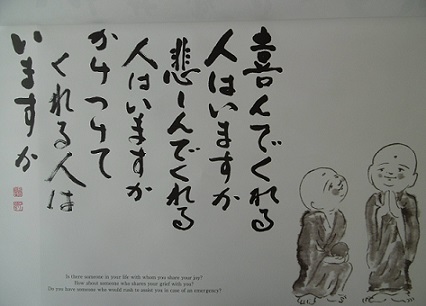 喜んでくれる
人はいますか
悲しんでくれる
人はいますか
かけつけて
くれる人は
いますか
Is there someone in your life with whom you share your joy?
How about someone who shares your grief with you?
Do you have someone who would rush to assist you in case of an emergency?